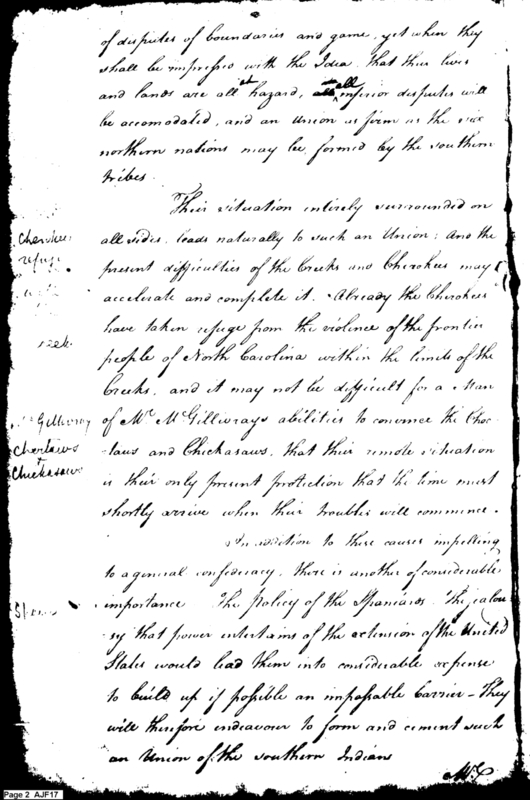 of disputes of boundaries and game, yet when they
shall be impressed with the Idea, that their lives
and lands are all at hazard, all inferior disputes will
be accomodated, and an Union as firm as the six
northern nations may be formed by the southern
tribes.
Their situation entirely surrounded on
all sides, leads naturally to such an Union; And the
present difficulties of the Creeks and Cherokees may
accelerate and complete it. Already the Cherokees
have taken refuge from the violence of the frontier
people of North Carolina within the limits of the
Creeks, and it may not be difficult for a Man
of Mr. McGillivrays abilities to convince the Choc-
taws and Chickasaws, that their remote situation
is their only present protection that the time must
shortly arrive when their troubles will commence.
In addition to these causes impelling
to a general confederacy, there is another of considerable
importance The Policy of the Spaniards. The jealou
sy that power entertains of the extension of the United
States would lead them into considerable expense
to build up if possible an impassable barrier - They
will therefore endeavour to form and cement such
an Union of the southern Indians
Mr. G
Cherokee
refuge
Creek
McGillivray
Choctaws
+
Chickasaws
Page 2 AJF17